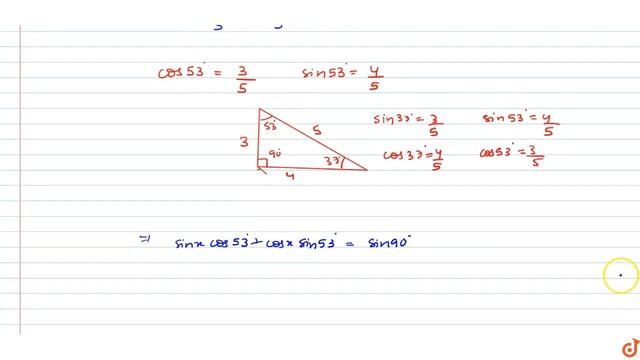 cos53° = 3/5 sin53° = 4/5
53°
3
5
90°
33°
4
sin33° = 3/5 sin53° = 4/5
cos33° = 4/5 cos53° = 3/5
⇒ sinx cos53° + cosx sin53° = sin90°